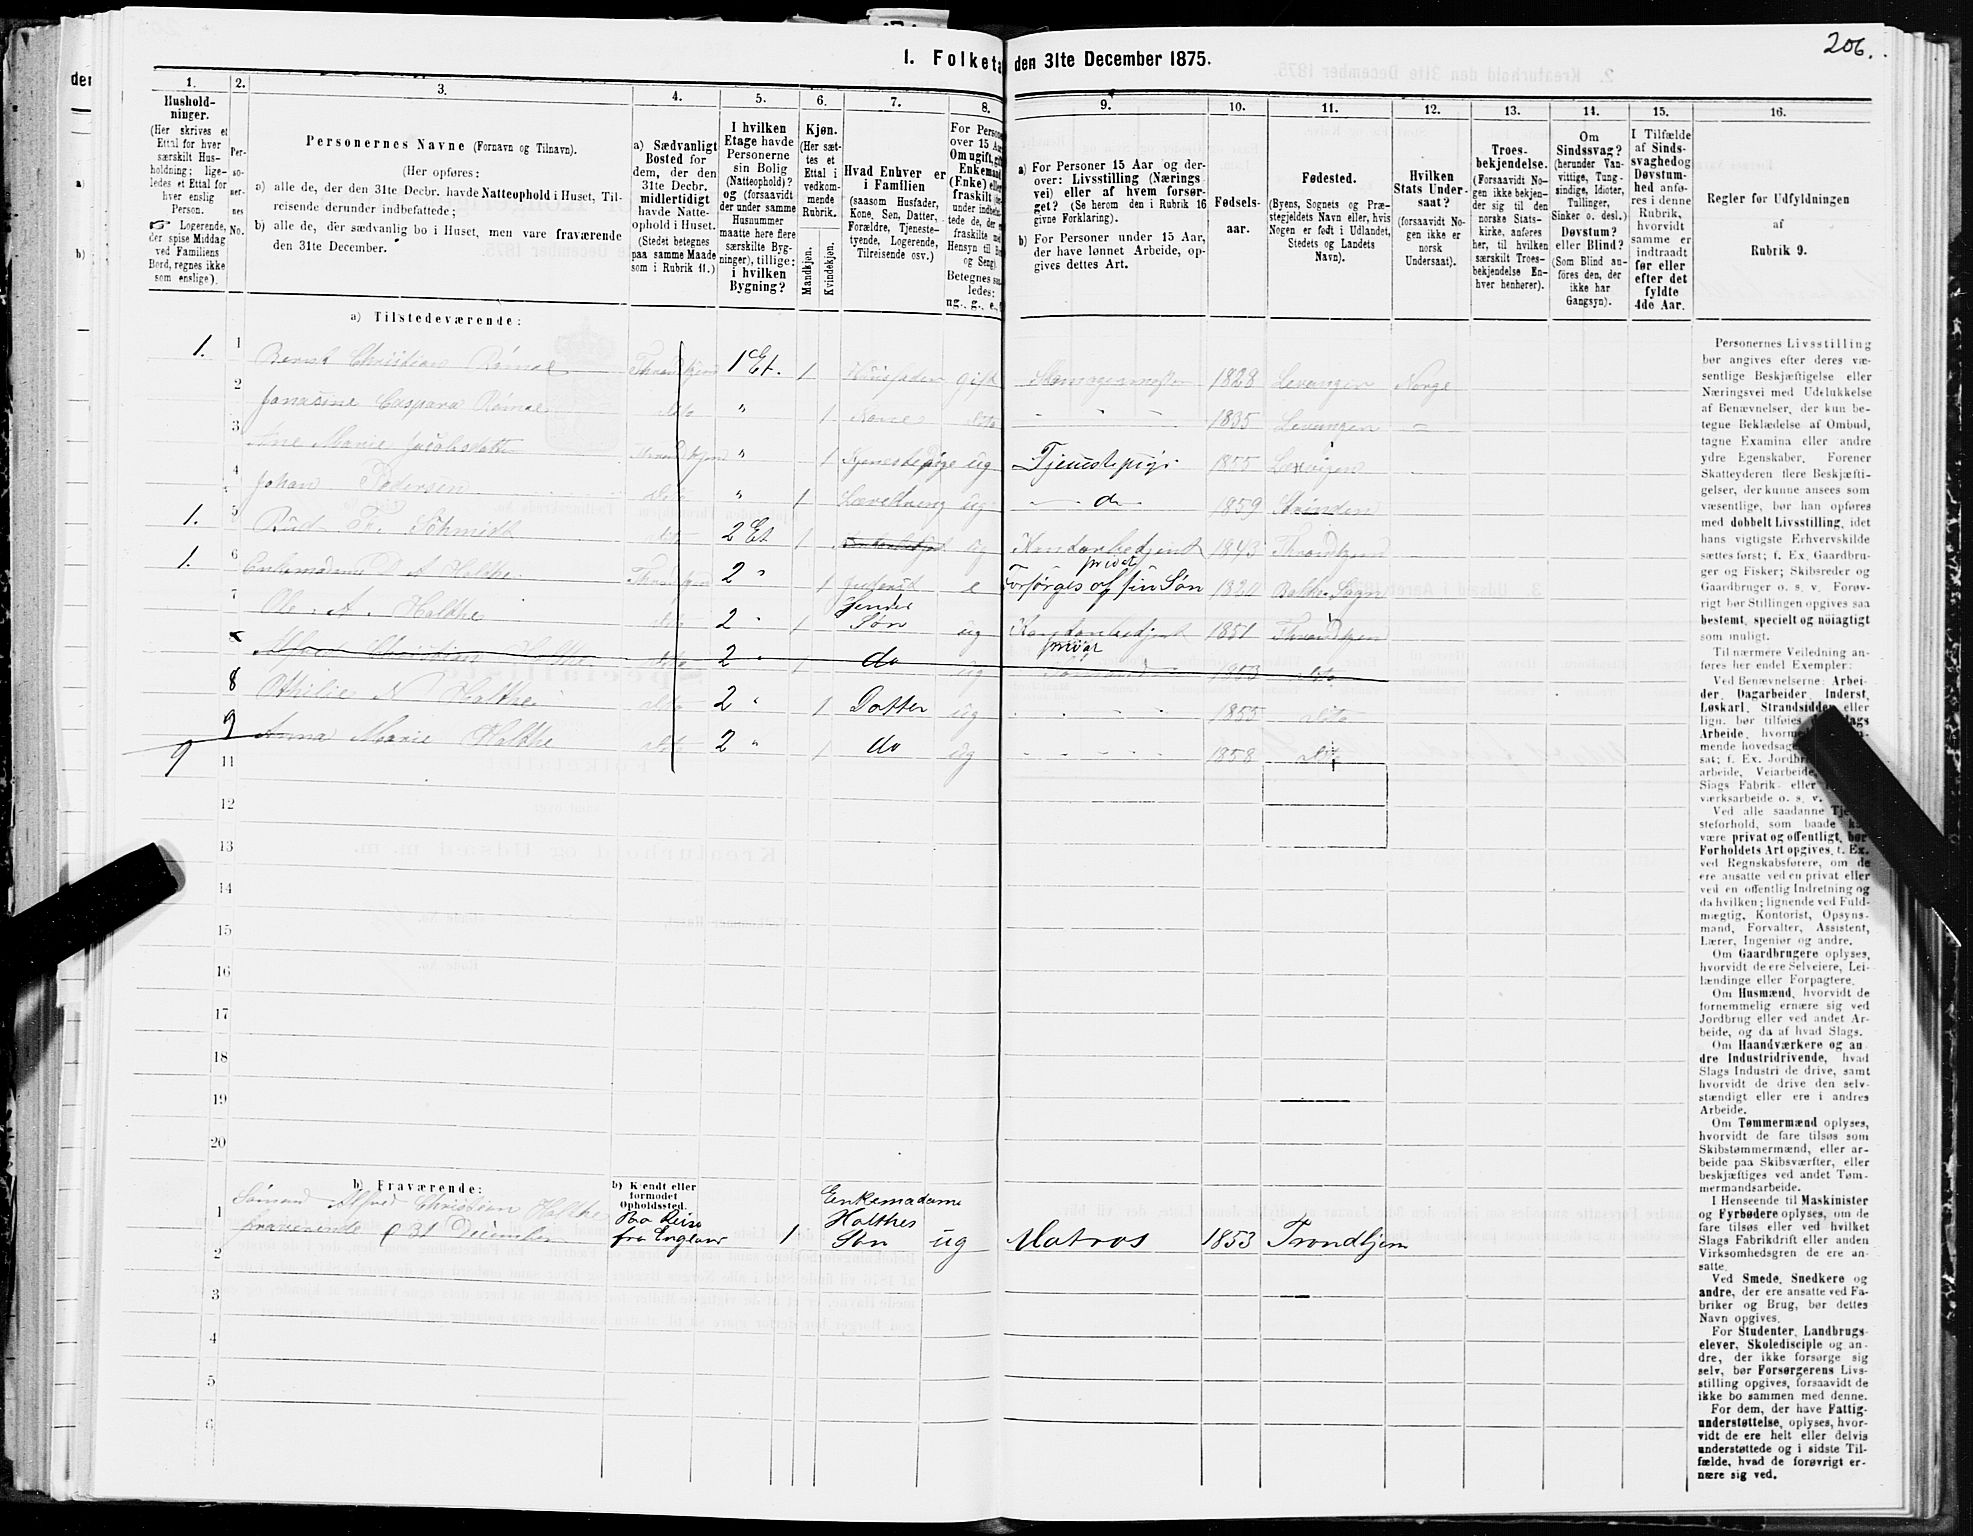 206.
I. Folketæ den 31te December 1875.
1. 2. 3. 4. 5. 6. 7. 8. 9. 10. 11. 12. 13. 14. 15. 16.
Hushold-
ninger.
(Her skrives et
Ettal for hver
særskilt Hus-
holdning; lige-
ledes et Ettal for
hver enslig
Person.
☞ Logerende,
der spise Middag
ved Familiens
Bord, regnes ikke
som enslige).
Per-
so-
ner-
nes
No.
Personernes Navne (Fornavn og Tilnavn).
(Her opføres:
a) alle de, der den 31te Decbr. havde Natteophold i Huset, Til-
reisende derunder indbefattede;
b) alle de, der sædvanlig bo i Huset, men vare fraværende
den 31te December.
a) Sædvanligt
Bosted for
dem, der den
31te Decbr.
midlertidigt
havde Natte-
ophold i Huset.
(Stedet betegnes
paa samme Maade
som i Rubrik 11.)
I hvilken
Etage havde
Personerne
sin Bolig
(Natteophold)?
og (forsaavidt
der under samme
Husnummer
maatte høre flere
særskilte Byg-
ninger), tillige:
i hvilken
Bygning?
Kjøn.
(Her sæt-
tes et
Ettal i
vedkom-
mende
Rubrik.
Mandkjøn.
Kvindekjøn.
Hvad Enhver er
i Familien
(saasom Husfader,
Kone, Søn, Datter,
Forældre, Tjeneste-
tyende, Logerende,
Tilreisende osv.)
For Perso
over 15 Aa
Om ugift, gift
Enkemand
(Enke) ell
fraskilt
under indbe
tede de, der
fraskilte
Hensyn til Bo
og Seng).
Betegnes saa-
ledes:
ug., g., e.,
a) For Personer 15 Aar og der-
over: Livsstilling (Nærings-
vei) eller af hvem forsør-
get? (Se herom den i Rubrik 16
givne Forklaring).
b) For Personer under 15 Aar,
der have lønnet Arbeide, op-
gives dettes Art.
Fødsels-
aar.
Fødested.
(Byens, Sognets og Præ-
stegjeldets Navn eller, hvis
Nogen er født i Udlandet,
Stedets og Landets
Navn).
Hvilken
Stats Under-
saat?
(forsaavidt No-
gen ikke er
norsk
Undersaat).
Troes-
bekjendelse.
(Forsaavidt No-
gen ikke bekjen-
der sig til den
norske Stats-
kirke, anføres
her, til hvilken
særskilt Troes-
bekjendelse En-
hver henhører).
Om
Sindssvag?
(herunder Van-
vittige, Tung-
sindige, Idioter,
Tullinger,
Sinker o. desl.)
Døvstum?
eller Blind?
(Som Blind an-
føres den, der
ikke har
Gangsyn).
I Tilfælde
af Sinds-
svaghed og
Døvstum-
hed anfø-
res i denne
Rubrik,
hvorvidt
samme er
indtraadt
før eller
efter det
fyldte
4de Aar.
Regler for Udfyldningen
af
Rubrik 9.
a) Tilstedeværende:
1. 1 Bernt Christian Rømo Throndhjem 1 Et. 1 Huusfader gift 1828 Levanger Norge
2 Janasine Caspara Rømo dito " 1 Kone dito 1835 Levanger
3 Ane Marie Jacobsdatter Throndhjem " 1 Tjenestepige ug Tjenstepige 1855
4 Johan Pedersen dito " 1 ug d 1859 Strinden
1. 5 Fr. Schmidt dito 2 Et 1 ug Kontorbetjent privat 1843 Throndhjem
1. 6 Enkemadame A Holthe Throndhjem 2 " 1 e Forsørges af sin Søn
7 Ole A. Holthe dito 2 " 1 Hendes Søn ug Kontorbetjent privat 1851 Throndhjem
Alfred Christian Holthe dito 2 " 1 do ug Sømand 1853 dito
8 Othilie N Holthe dito 2 " 1 Datter ug 1855 dito
9 9 Anna Marie Holthe dito 2 " 1 do ug 1858 dito
11
12
13
14
15
16
17
18
19
20
b) Fraværende:
b) Kjendt eller
formodet
Opholdssted.
1 Sømand Alfred Christian Holthe
fraværende 31 December
Paa Reise
fra England
1
Enkemadame
Holthes
Søn
ug Matros 1853 Trondhjem
2
3
4
5
6
Personernes Livsstilling
bør angives efter deres væ-
sentlige Beskjæftigelse eller
Næringsvei med Udelukkelse
af Benævnelser, der kun be-
tegne Beklædelse af Ombud,
tagne Examina eller andre
ydre Egenskaber. Forener
Skatteyderen flere Beskjæfti-
gelser, der kunne ansees som
væsentlige, bør han opføres
med dobbelt Livsstilling, idet
hans vigtigste Erhvervskilde
sættes først; f. Ex. Gaardbru-
ger og Fisker; Skibsreder og
Gaardbruger o. s. v. Forøv-
rigt bør Stillingen opgives saa
bestemt, specielt og nøiagtigt
som muligt.
Til nærmere Veiledning an-
føres her endel Exempler:
Ved Benævnelserne: Arbei-
der, Dagarbeider, Inderst,
Løskarl, Strandsidder eller
lign. bør tilføies slags
Arbeide, hvorme
mende hovedsag
sat; f. Ex. Jordbr
arbeide, Veiarbeide,
Slags Fabrik- eller
værksarbeide o. s. v.
Ved alle saadanne Tje
steforhold, som baade k
være privat og offentlig, bør
Forholdets Art opgives, t. Ex.
ved Regnskabsførere, om de
ere ansatte ved en privat eller
ved en offentlig Indretning og
da hvilken; lignende ved Fuld-
mægtig, Kontorist, Opsyns-
mand, Forvalter, Assistent,
Lærer, Ingeniør og andre.
Om Gaardbrugere oplyses,
hvorvidt de ere Selveiere, Lei-
lændinge eller Forpagtere.
Om Husmænd, hvorvidt de
fornemmelig ernære sig ved
Jordbrug eller ved andet Ar-
beide, og da af hvad Slags.
Om Haandværkere og an-
dre Industridrivende, hvad
Slags Industri de drive, samt
hvorvidt de drive den selv-
stændigt eller ere i andres
Arbeide.
Om Tømmermænd oplyses,
hvorvidt de fare tilsøs som
Skibstømmermænd, eller ar-
beide paa Skibsværfter, eller
beskjæftiges ved andet Tøm-
mermandsarbeide.
I Henseende til Maskinister
og Fyrbødere oplyses, om de
fare tilsøs eller ved hvilket
Slags Fabrikdrift eller anden
Virksomhedsgren de ere an-
satte.
Ved Smede, Snedkere og
andre, der ere ansatte ved Fa-
briker og Brug, bør dettes
Navn opgives.
For Studenter, Landbrugs-
elever, Skoledisciple og an-
dre, der ikke forsørge sig
selv, bør Forsørgerens Livs-
stilling opgives, forsaavidt de
ikke bo sammen med denne.
For dem, der have Fattig-
understøttelse, oplyses, hvor-
vidt de ere helt eller delvis
understøttede og i sidste Til-
fælde, hvad de forøvrigt er-
nære sig ved.